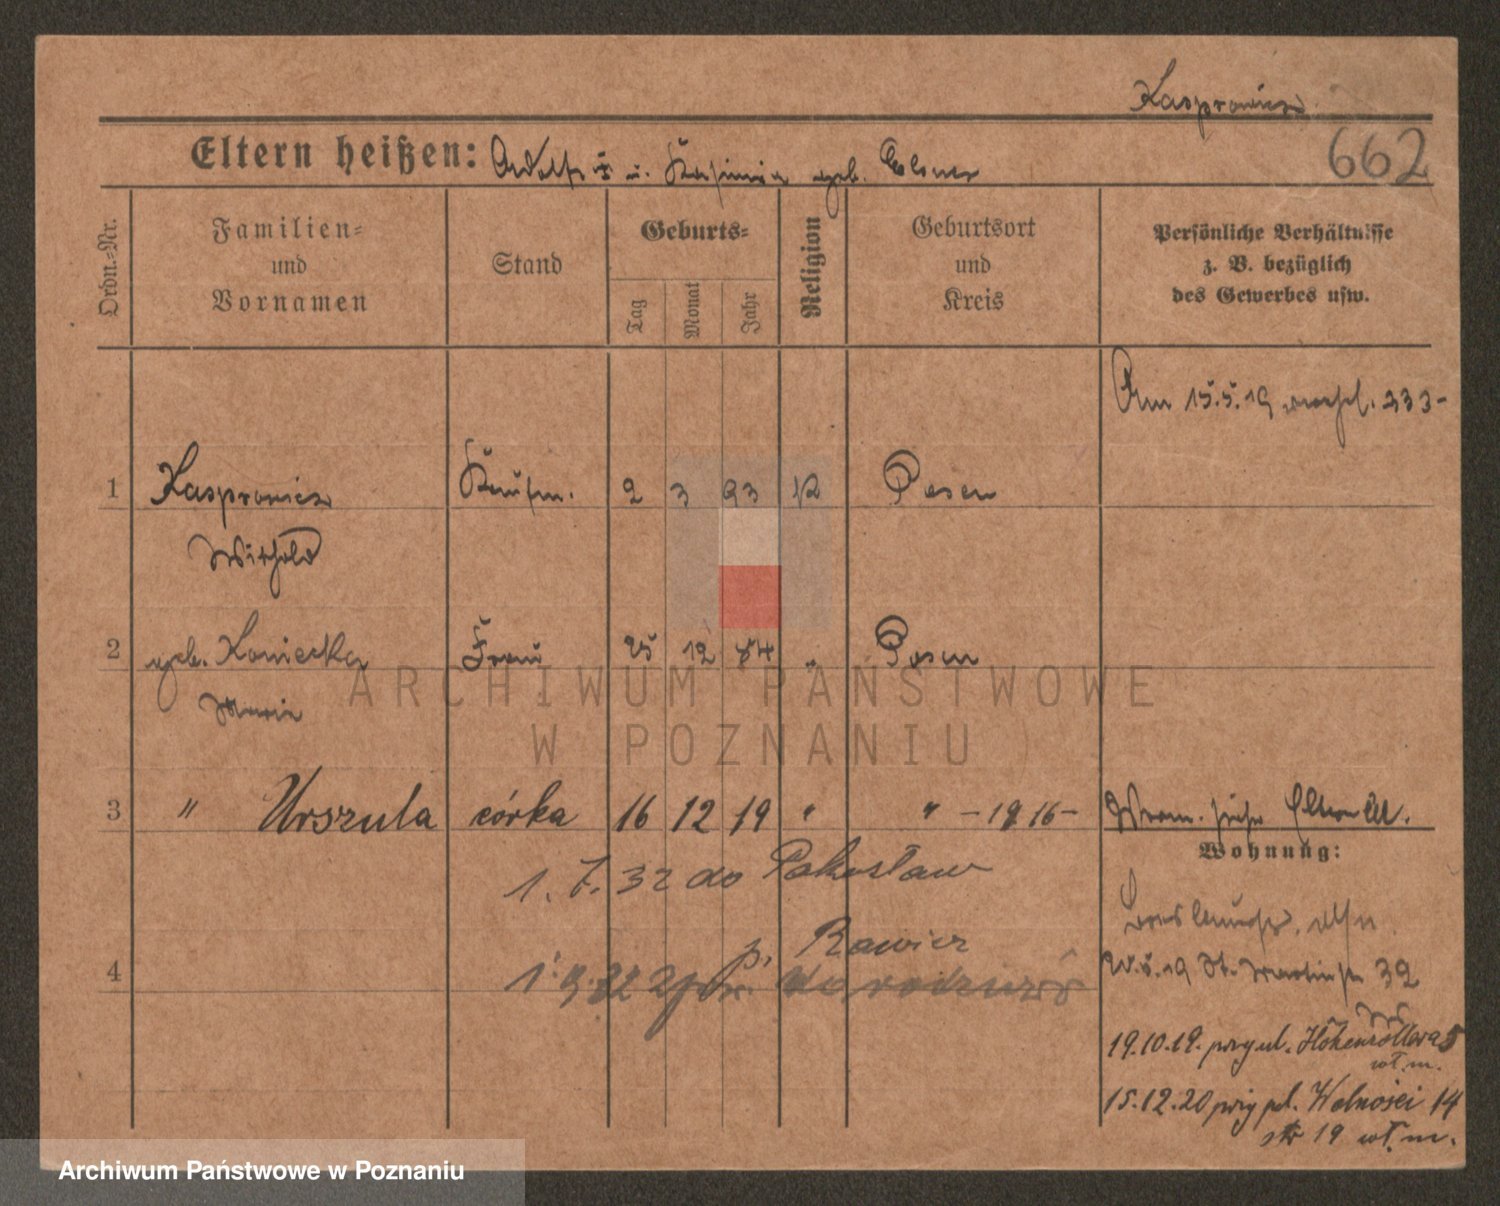 Kasprowicz
Eltern heißen: Adolf u. Kasimira geb. Elsner
662
Ordn.-Nr.
Familien-
und
Vornamen
Stand
Geburts-
Tag
Monat
Jahr
Religion
Geburtsort
und
Kreis
Persönliche Verhältnisse
z. B. bezüglich
des Gewerbes usw.
Am 15.5.19
1 Kasprowicz Kaufm. 2 3 93 K Posen
Withold
2 geb. Koniecka Frau 25 12 " Posen
Marie
3 " Urszula córka 16 12 19 " " -1916-
Wohnung:
1. 7. 32 do Pakosław
p. Rawicz
4
St. Martinstr 32
19.10.19. przy ul. Hohenzollerna 5
wł. m.
15.12.20 przy pl. Wolności 14
19 wł. m.
ARCHIWUM PAŃSTWOWE
W POZNANIU
Archiwum Państwowe w Poznaniu